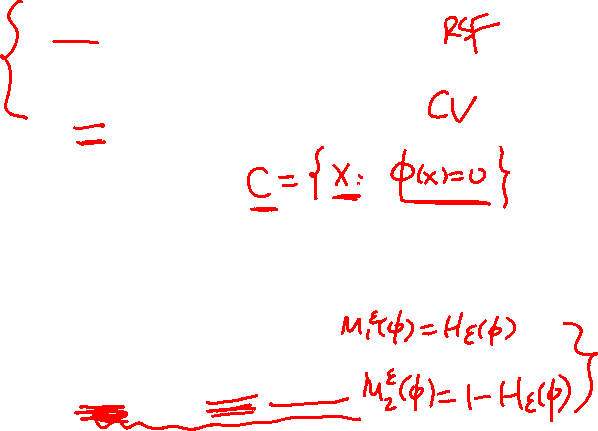 RSF
CV
C = { x : φ(x)=0 }
M₁^ε(φ) = H_ε(φ)
M₂^ε(φ) = 1 - H_ε(φ)